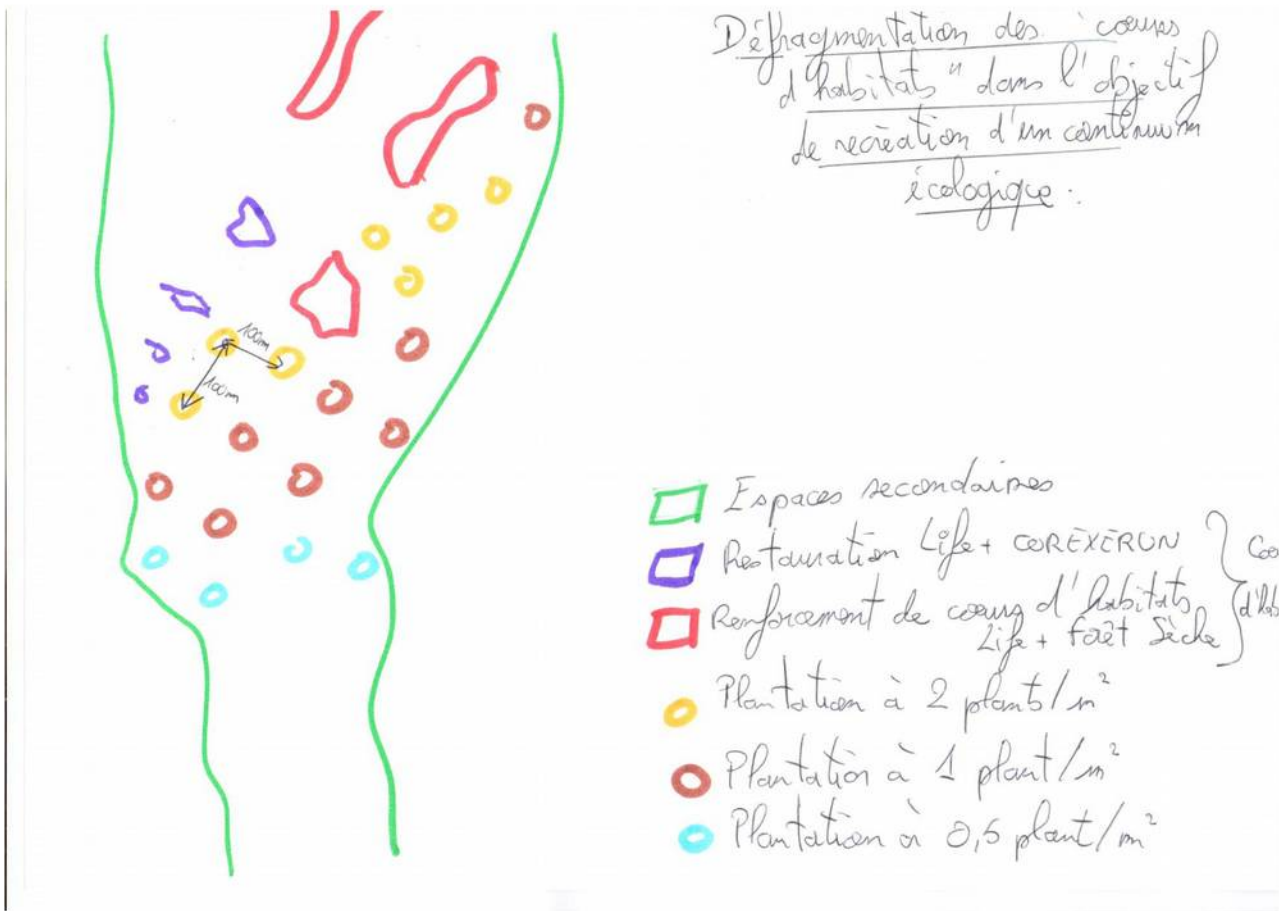 Défragmentation des "cœurs
d'habitats" dans l'objectif
de recréation d'un continuum
écologique.
100m
100m
Espaces secondaires
Restauration Life+ COREXERUN
Renforcement de cœurs d'habitats
Life+ Forêt Sèche
Plantation à 2 plants/m²
Plantation à 1 plant/m²
Plantation à 0,5 plant/m²